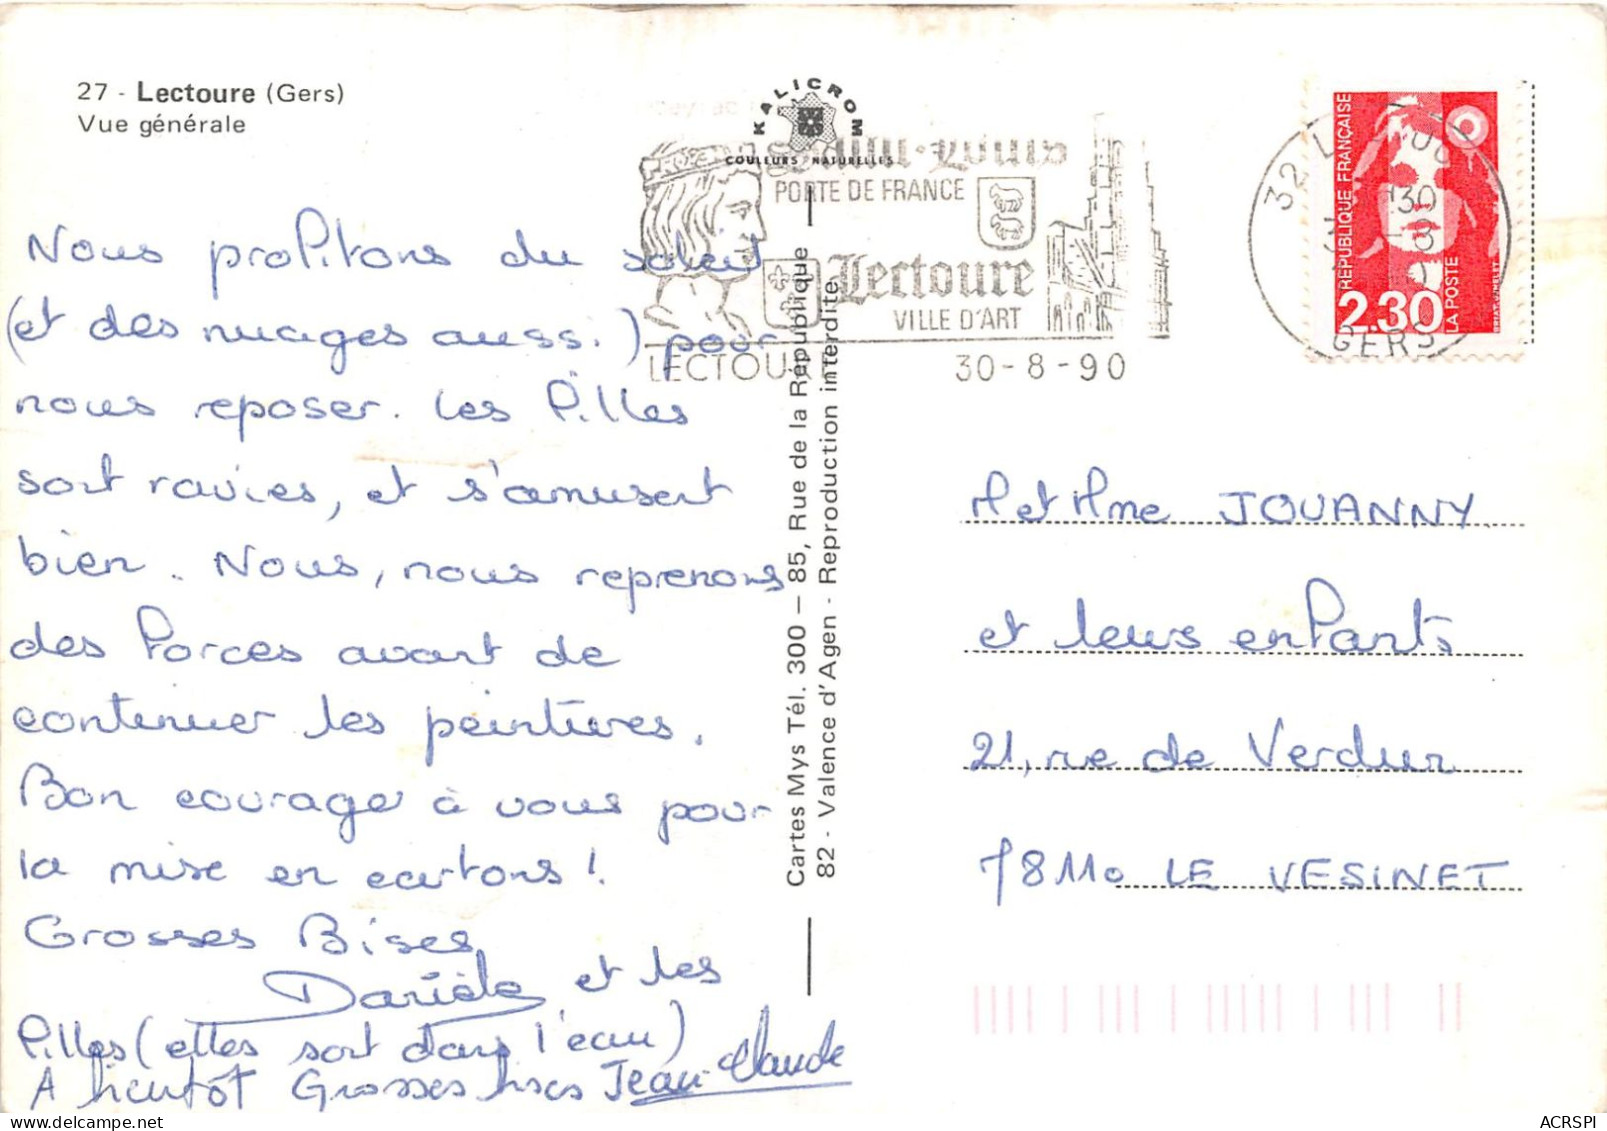 27 - Lectoure (Gers)
Vue générale
KALICROM
COULEURS NATURELLES
Saint-Louis
PORTE DE FRANCE
Lectoure
VILLE D'ART
LECTOURE
30-8-90
32
GERS
RÉPUBLIQUE FRANÇAISE
2.30
LA POSTE
Nous profitons du soleil
(et des nuages aussi) pour
nous reposer. Les filles
sont ravies, et s'amusent
bien. Nous, nous reprenons
des forces avant de
continuer les peintures.
Bon courage à vous pour
la mise en cartons !
Grosses Bises
Danièle et les
filles (elles sont dans l'eau)
A bientôt Grosses bises Jean-Claude
Cartes Mys Tél. 300 — 85, Rue de la République
82 - Valence d'Agen - Reproduction interdite
M et Mme JOUANNY
et leurs enfants
21, rue de Verdun
78110 LE VESINET
ACRSPI